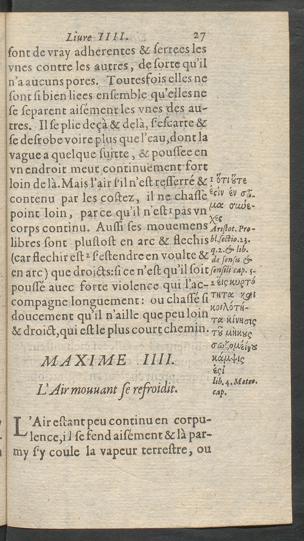 Liure IIII. 27
sont de vray adherentes & serrees les
vnes contre les autres, de sorte qu'il
n'a aucuns pores. Toutesfois elles ne
sont si bien liees ensemble qu'elles ne
se separent aisément les vnes des au-
tres. Il se plie deçà & delà, s'escarte &
se desrobe voire plus que l'eau, dont la
vague a quelque suitte, & poussee en
vn endroit meut continuement fort
loin de là. Mais l'air s'il n'est resserré &
contenu par les costez, il ne chasse
point loin, parce qu'il n'est ¹ pas vn
corps continu. Aussi ses mouuemens
libres sont plustost en arc & flechis
(car flechir est ² s'estendre en voulte &
en arc) que droicts: si ce n'est qu'il soit
poussé auec forte violence qui l'ac-
compagne longuement: ou chassé si
doucement qu'il n'aille que peu loin
& droict, qui est le plus court chemin.
1 ὅτι οὔτε
ἐςὶν ἓν σῶ
μα συνε-
χές
Aristot. Pro-
bl. sectio. 23.
q. 2. & lib.
de sensu &
sensili cap. 5.
2 εἰς κυρτό
τητα καὶ
κοιλότη-
τα κίνησις
τοῦ μήκους
σωζομένου
κάμψις
ἐςί
lib. 4. Meteo.
cap.
MAXIME IIII.
L'Air mouuant se refroidit.
L'Air estant peu continu en corpu-
lence, il se fend aisément & là par-
my s'y coule la vapeur terrestre, ou